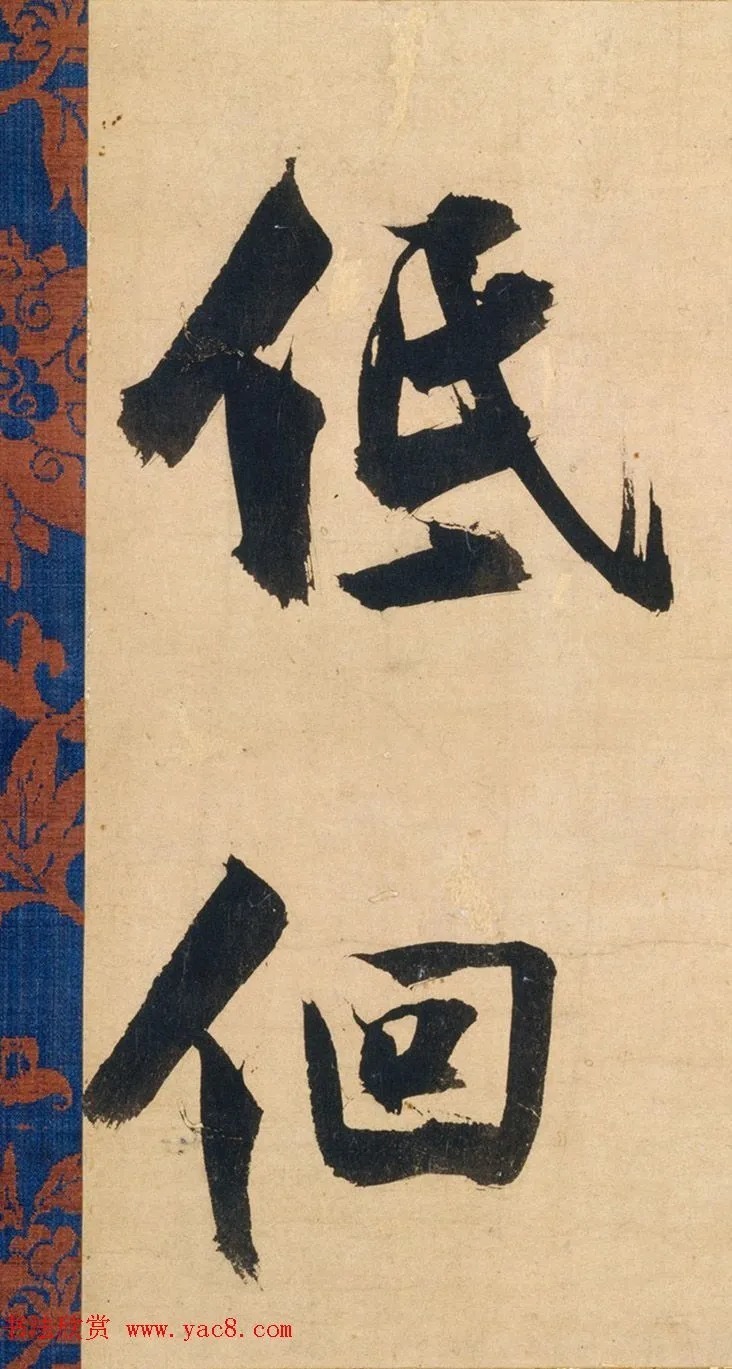 低
佪
书法欣赏 www.yac8.com